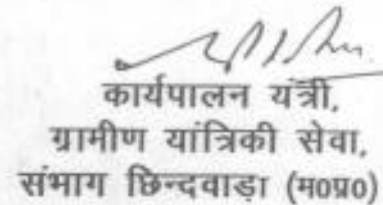 कार्यपालन यंत्री,
ग्रामीण यांत्रिकी सेवा,
संभाग छिन्दवाड़ा (म0प्र0)